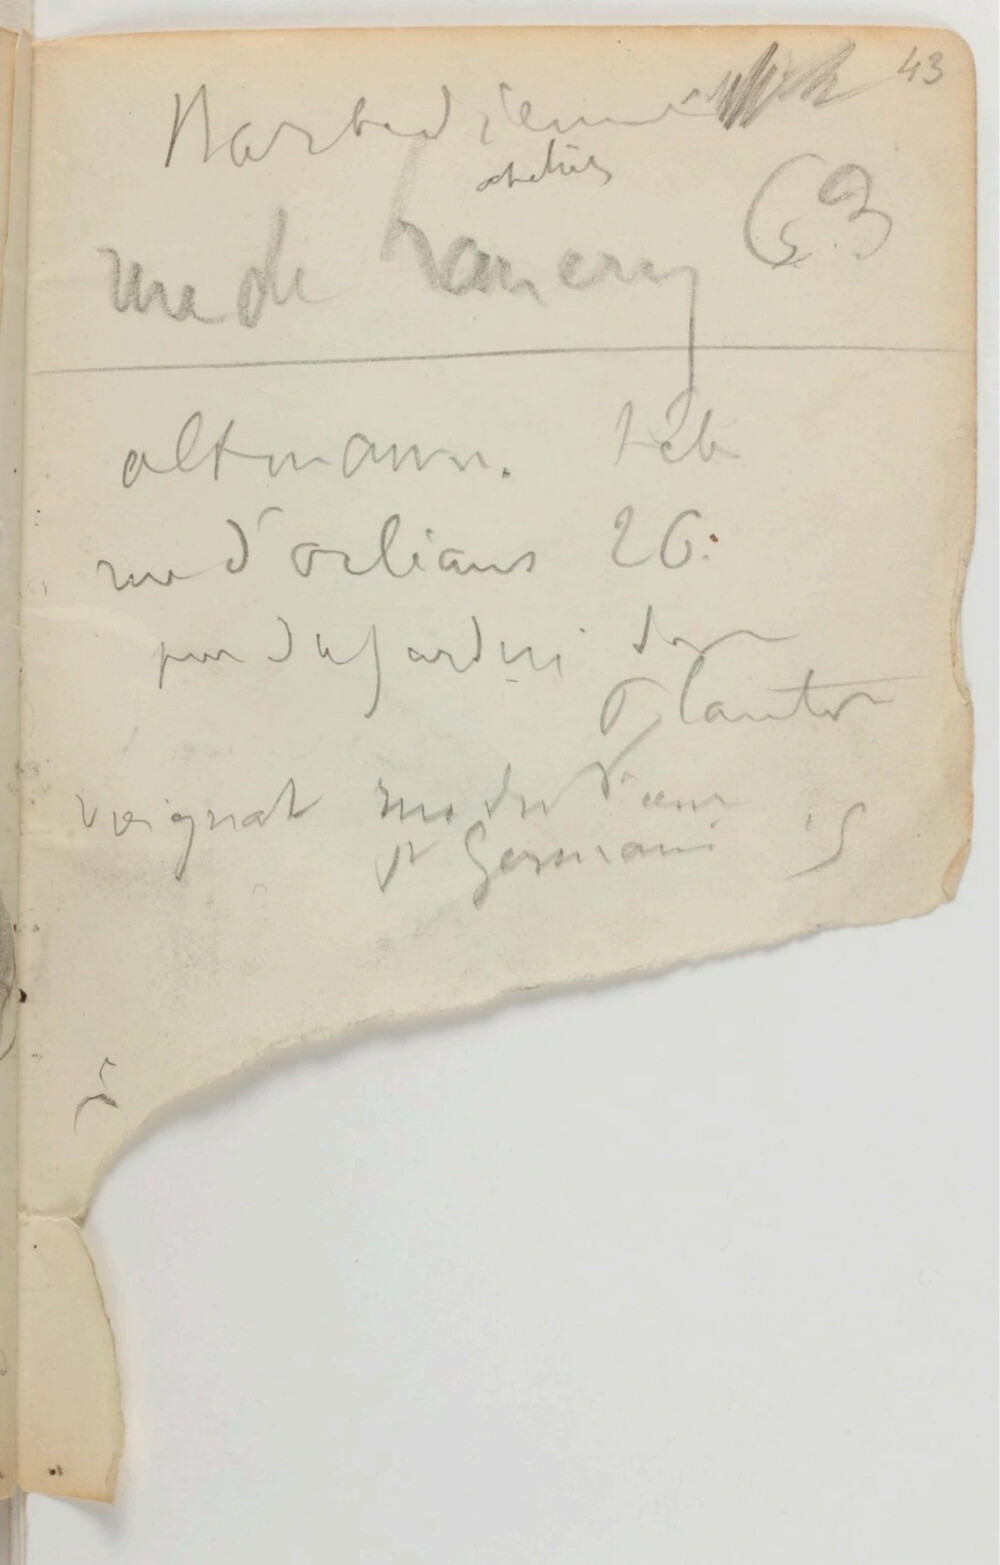 43
Barbedienne
ateliers
rue de Lancry 63
altmann.
rue d'orléans 26.
pres du jardin des
Plantes
voignat rue du Vieux
St Germain 5